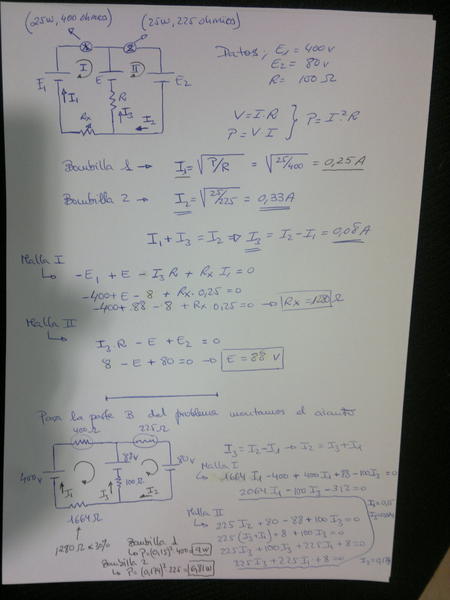 (25W, 400 ohmios)
(25W, 225 ohmios)
1
2
I
II
E1
E
E2
I1
R
I3
Rx
I2
Datos: E1 = 400V
E2 = 80V
R = 100 Ω
V = I·R
P = V·I
P = I²·R
Bombilla 1 → I1 = √P/R = √25/400 = 0,25A
Bombilla 2 → I2 = √25/225 = 0,33A
I1 + I3 = I2 ⇒ I3 = I2 - I1 = 0,08A
Malla I
↳ -E1 + E - I3 R + Rx I1 = 0
-400 + E - 8 + Rx·0,25 = 0
-400 + 88 - 8 + Rx 0,25 = 0 → Rx = 1280 Ω
Malla II
↳ I3 R - E + E2 = 0
8 - E + 80 = 0 → E = 88 V
Para la parte B del problema montamos el circuito
400Ω
225Ω
400V
88V
80V
100Ω
I1
I3
I2
1664Ω
1280Ω x 30%
I3 = I2 - I1 → I2 = I3 + I1
Malla I
↳ 1664 I1 - 400 + 400 I1 + 88 - 100 I3 = 0
2064 I1 - 100 I3 - 312 = 0
Malla II
225 I2 + 80 - 88 + 100 I3 = 0
225 (I3 + I1) + 8 + 100 I3 = 0
225 I3 + 100 I3 + 225 I1 + 8 = 0
225 I3 + 225 I1 + 8 = 0
I1 = 0,15
Bombilla 1
↳ P = (0,15)² 400 = 9W
Bombilla 2